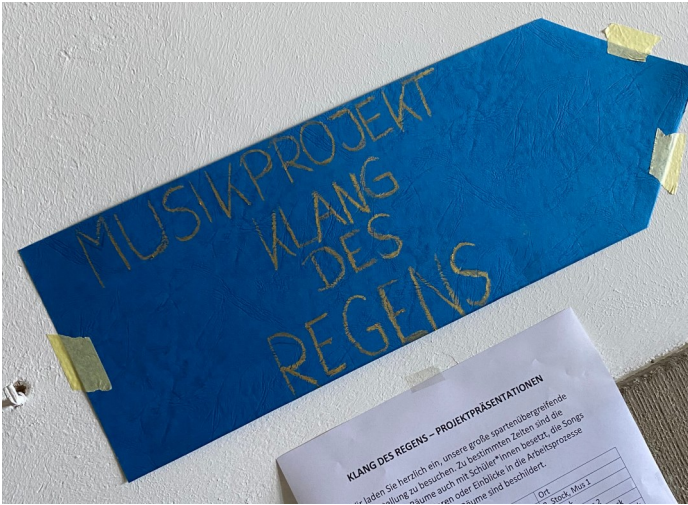 MUSIKPROJEKT
KLANG
DES
REGENS
KLANG DES REGENS – PROJEKTPRÄSENTATIONEN
laden Sie herzlich ein, unsere große spartenübergreifende
zu besuchen. Zu bestimmten Zeiten sind die
auch mit Schüler*innen besetzt, die Songs
oder Einblicke in die Arbeitsprozesse
sind beschildert.
Ort
Stock, Mus 1